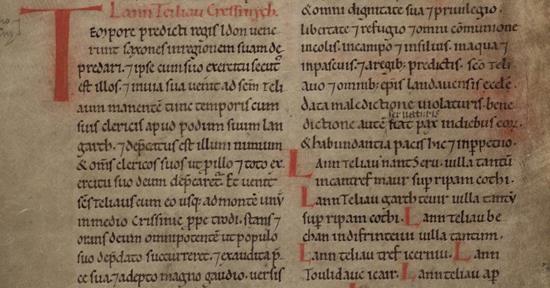 Lann Teliau Cressinych.
Tempore predicti regis Idon vene
runt saxones inregionem suam de
predari. ⁊ ipse cum suo exercitu
est illos. ⁊ inuia sua venit ad scm Teli
aum manente tunc temporis cum
suis clericis apud podum suum lan
garth. ⁊ illum nimium
& om̄s clericos suos ut p̱ illo ⁊ toto ex
ercitu suo deum Et venit
scs teliaus cum eo usq; ad monte unū
in medio Crissinic ꝓpe trodi. stans ⁊
orans deum omnipotente ut populo
suo dep̄dato succurreret. ⁊ exaudita p̄
ce sua. ⁊ adepto magno gaudio. versis
& omni dignitate sua ⁊ privilegio.
libertate ⁊ refugio ⁊ omni cōmunione
incolis. incampo ⁊ insiluis. inaqua ⁊
inpascuis. ⁊ a regib; predictis. sco Teli
auo ⁊ omnib; ep̄is landauensis eccłe.
data maledictione violaturis. bene
dictione autē fiat pax indiebus eoꝝ.
& habundantia pacis hic ⁊ inppetuo.
Lann Teliau nant Seru. uilla tantū
incantref maur sup̄ ripam cothi.
Lann Teliau garth teuir villa tantū
sup̄ ripam cothi. Lann teliau be
chan indifrinteiui uilla tantum.
Lann teliau tref icerniu. Lann
Toulidauc icair. Lann teliau ap̄